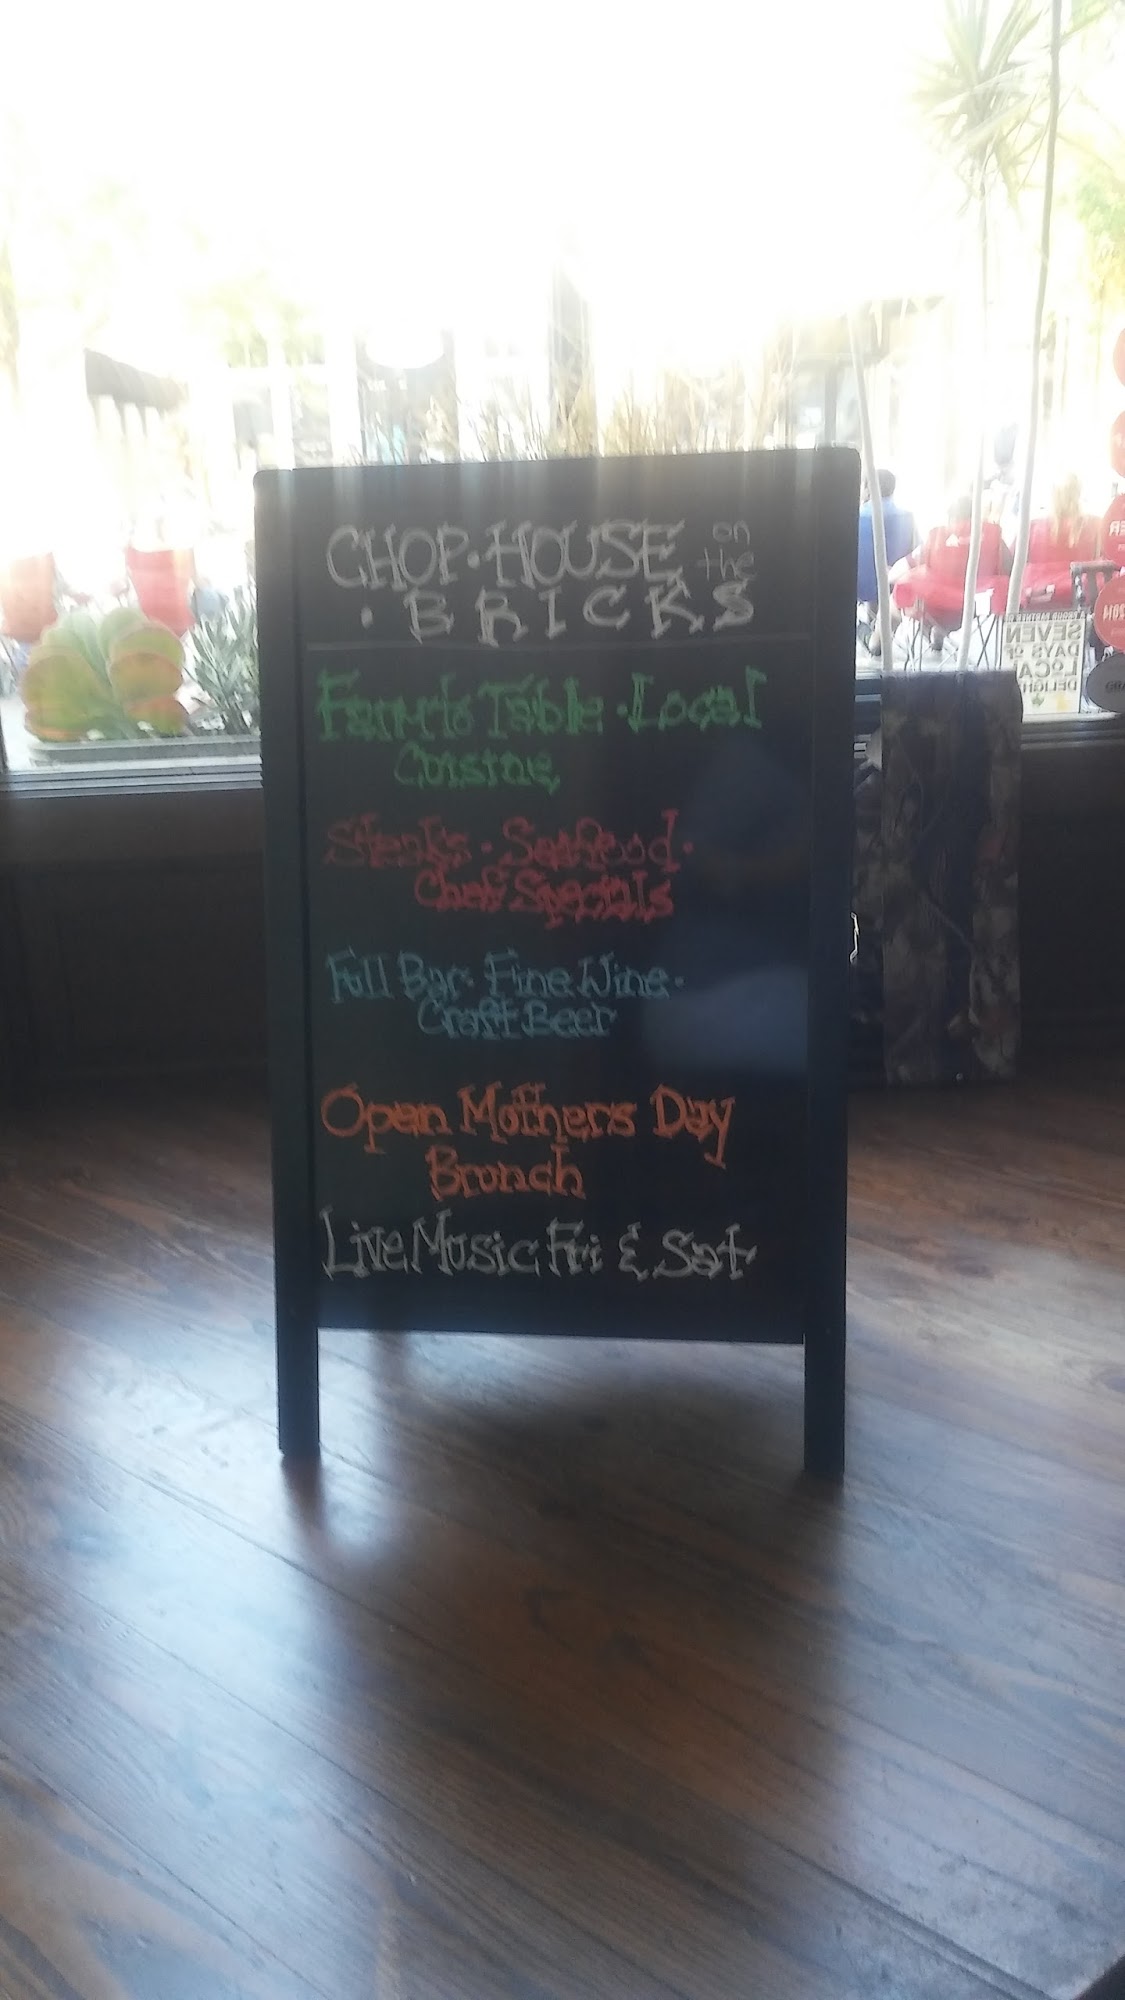 CHOP·HOUSE on the
·BRICKS
Farm to Table·Local
Cuisine
Steaks·Seafood·
Chef Specials
Full Bar·Fine Wine·
Craft Beer
Open Mothers Day
Brunch
Live Music Fri & Sat
SEVEN
DAYS of
LOCAL
DELIGHT
2014